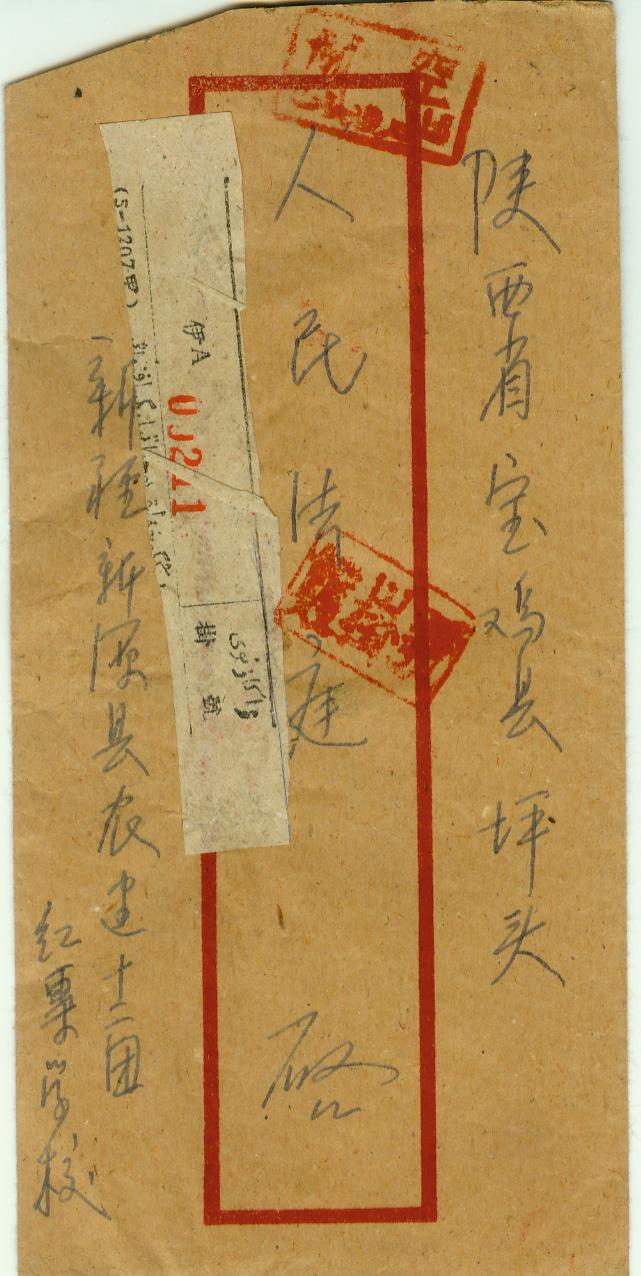 陕西省宝鸡县坪头
人民法庭 启
新疆新源县农建十二团
红专学校
(5-1207甲)
伊A
00211
掛號